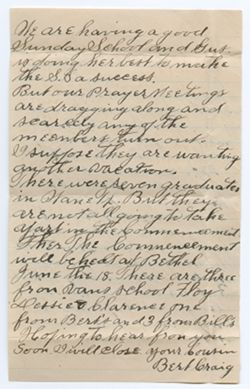 We are having a good
Sunday School and Gus.
is doing her best to make
the S.S a success.
But our Prayer Meetings
are dragging along and
scarcely any of the
members turn out.
I suppose they are wanting
another vacation.
There were seven graduates
in But they
are not all going to take
part in the Commencement
The Commencement
will be held at Bethel
June the 18. These are three
from school Floy
Dessie & Clarence one
from Bert's and 3 from Bill's
Hoping to hear from you
soon I will close. Your Cousin
Bert Craig